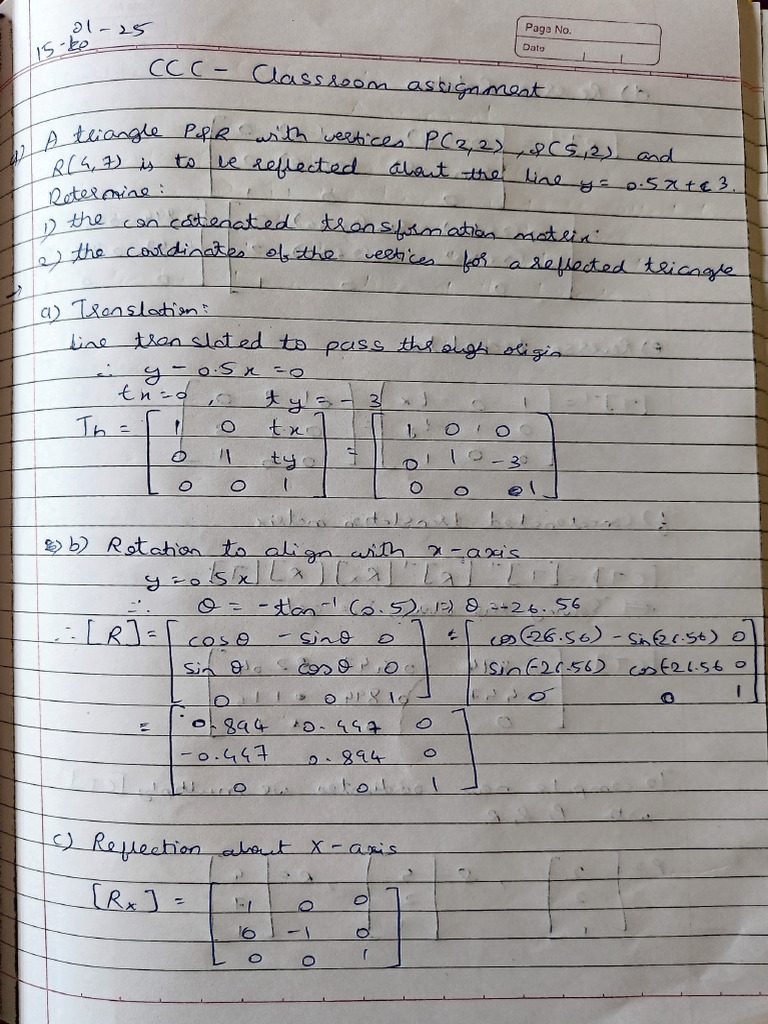 15-01-25
Page No.
Date
CCC - Classroom assignment
A triangle PQR with vertices P(2,2), Q(5,2) and
R(4,7) is to be reflected about the line y = 0.5x + 3.
Determine:
1) the concatenated transformation matrix.
2) the coordinates of the vertices for a reflected triangle
→
a) Translation:
Line translated to pass through origin
∴ y - 0.5x = 0
tx = 0, ty = -3
Tn = [ 1 0 tx = [ 1 0 0
0 1 ty 0 1 -3
0 0 1 ] 0 0 1 ]
b) Rotation to align with x-axis
y = 0.5x
∴ θ = -tan⁻¹(0.5) ⇒ θ = -26.56
∴ [R] = [ cosθ -sinθ 0 = [ cos(-26.56) -sin(-26.56) 0
sinθ cosθ 0 sin(-26.56) cos(-26.56 0
0 0 1 ] 0 0 1 ]
= [ 0.894 0.447 0
-0.447 0.894 0
0 0 1 ]
c) Reflection about X-axis
[Rx] = [ 1 0 0
0 -1 0
0 0 1 ]